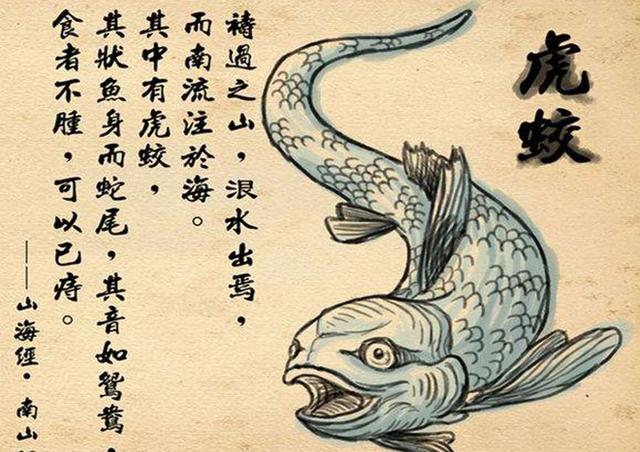 虎蛟
禱過之山，泿水出焉，
而南流注於海。
其中有虎蛟，
其狀魚身而蛇尾，其音如鴛鴦，
食者不腫，可以已痔。
——山海經·南山